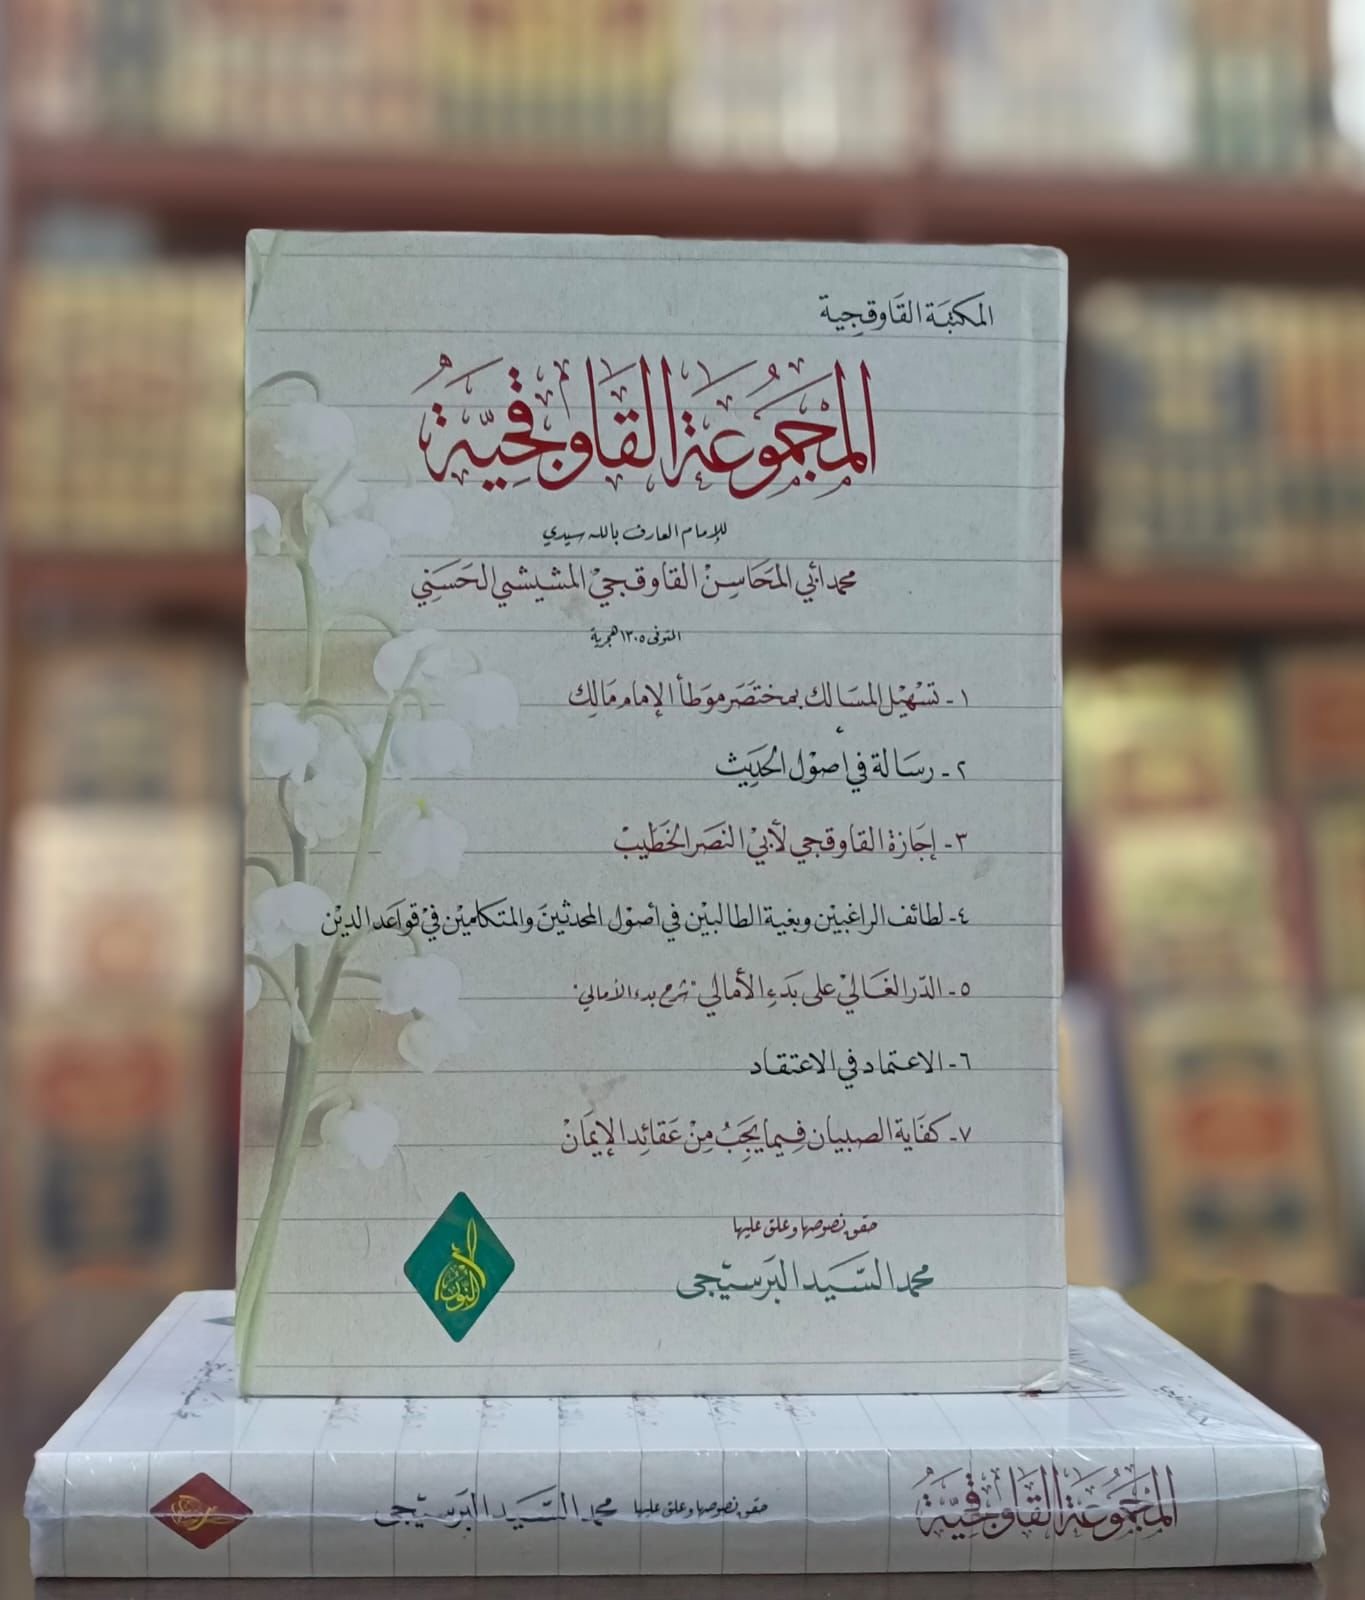 المكتبة القاوقجية
المَجْمُوعَة القَاوقجِيّة
للإمام العارف بالله سيدي
محمد أبي المَحَاسِنْ القاوقجيْ المشيشي الحَسَنِي
المتوفى ١٣٠٥ هجرية
١- تَسْهيْل المسَالك بمختصَر موَطأ الإمام مَالِك
٢- رسَالة في أصوْل الحَدِيث
٣- إجَازة القاوقجي لأبيْ النصَر الخَطيْب
٤- لطائف الراغبيْن وبغية الطالبيْن في أصوْل المحدثينَ والمتكلميْن فيْ قواعَد الديْن
٥- الدّر الغَاليْ على بَدءِ الأمالي "شرح بدء الأمالي"
٦- الاعتماد في الاعتقاد
٧- كفَاية الصبيان فيما يَجِبُ مِنْ عَقائِد الإيمَانْ
حقق نصوصها وعلق عليها
محمد السَّيَد البَرسيْجى
النور
المَجْمُوعَة القَاوقجِيّة
حقق نصوصها وعلق عليها
محمد السَّيَد البَرسيْجى